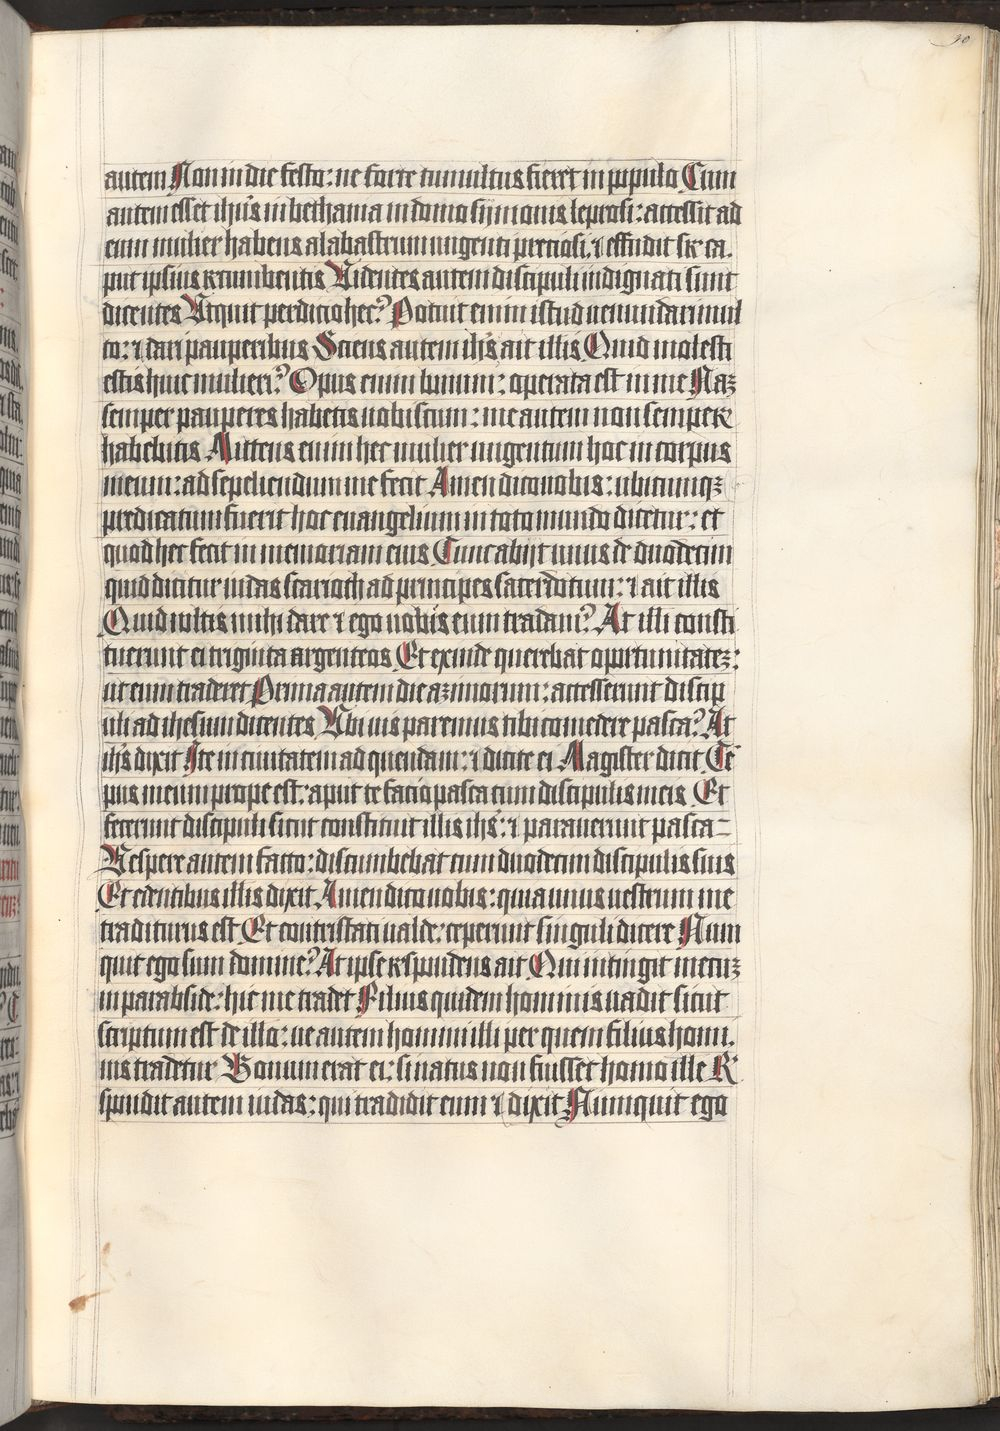 30
autem Non in die festo: ne forte tumultus fieret in populo Cum
autem esset ihūs in bethania in domo symonis leprosi: accessit ad
eum mulier habens alabastrum ungenti preciosi. ⁊ effudit sꝛ ca.
put ipsius recumbentis Videntes autem discipuli indignati sunt
dicentes Utquit perdicio hec? Potuit enim istud uenundari mul
to: ⁊ dari pauperibus Sciens autem ihūs ait illis Quid molesti
estis huic mulieri? Opus enim bonum: operata est in me Naʒ
semper pauperes habetis uobiscum: me autem non semper
habebitis Mittens enim hec mulier ungentum hoc in corpus
meum: ad sepeliendum me fecit Amen dico uobis: ubicumqʒ
predicatum fuerit hoc euangelium in toto mundo dicetur: et
quod hec fecit in memoriam eius Tunc abijt unus de duodecim
qui dicitur iudas scarioth ad principes sacerdotum: ⁊ ait illis
Quid uultis mihi dare ⁊ ego uobis eum tradam? At illi consti
tuerunt ei triginta argenteos Et exinde querebat oportunitateʒ:
ut eum traderet Prima autem die azimorum: accesserunt discip
uli ad ihesum dicentes Ubi uis paremus tibi comedere pasca? At
ihūs dixit Ite in ciuitatem ad quendam: ⁊ dicite ei Magister dicit Tē
pus meum prope est: aput te facio pasca cum discipulis meis Et
fecerunt discipuli sicut constituit illis ihūs: ⁊ parauerunt pasca
Vespere autem facto: discumbebat cum duodecim discipulis suis
Et edentibus illis dixit Amen dico uobis: quia unus uestrum me
traditurus est Et contristati ualde: ceperunt singuli dicere Num
quit ego sum domine? At ipse respondens ait Qui intingit mecuʒ
in parabside: hic me tradet Filius quidem hominis uadit sicut
scriptum est de illo: ue autem homini illi per quem filius homi.
nis tradetur Bonum erat ei: si natus non fuisset homo ille R̄
spondit autem iudas: qui tradidit eum ⁊ dixit Numquit ego